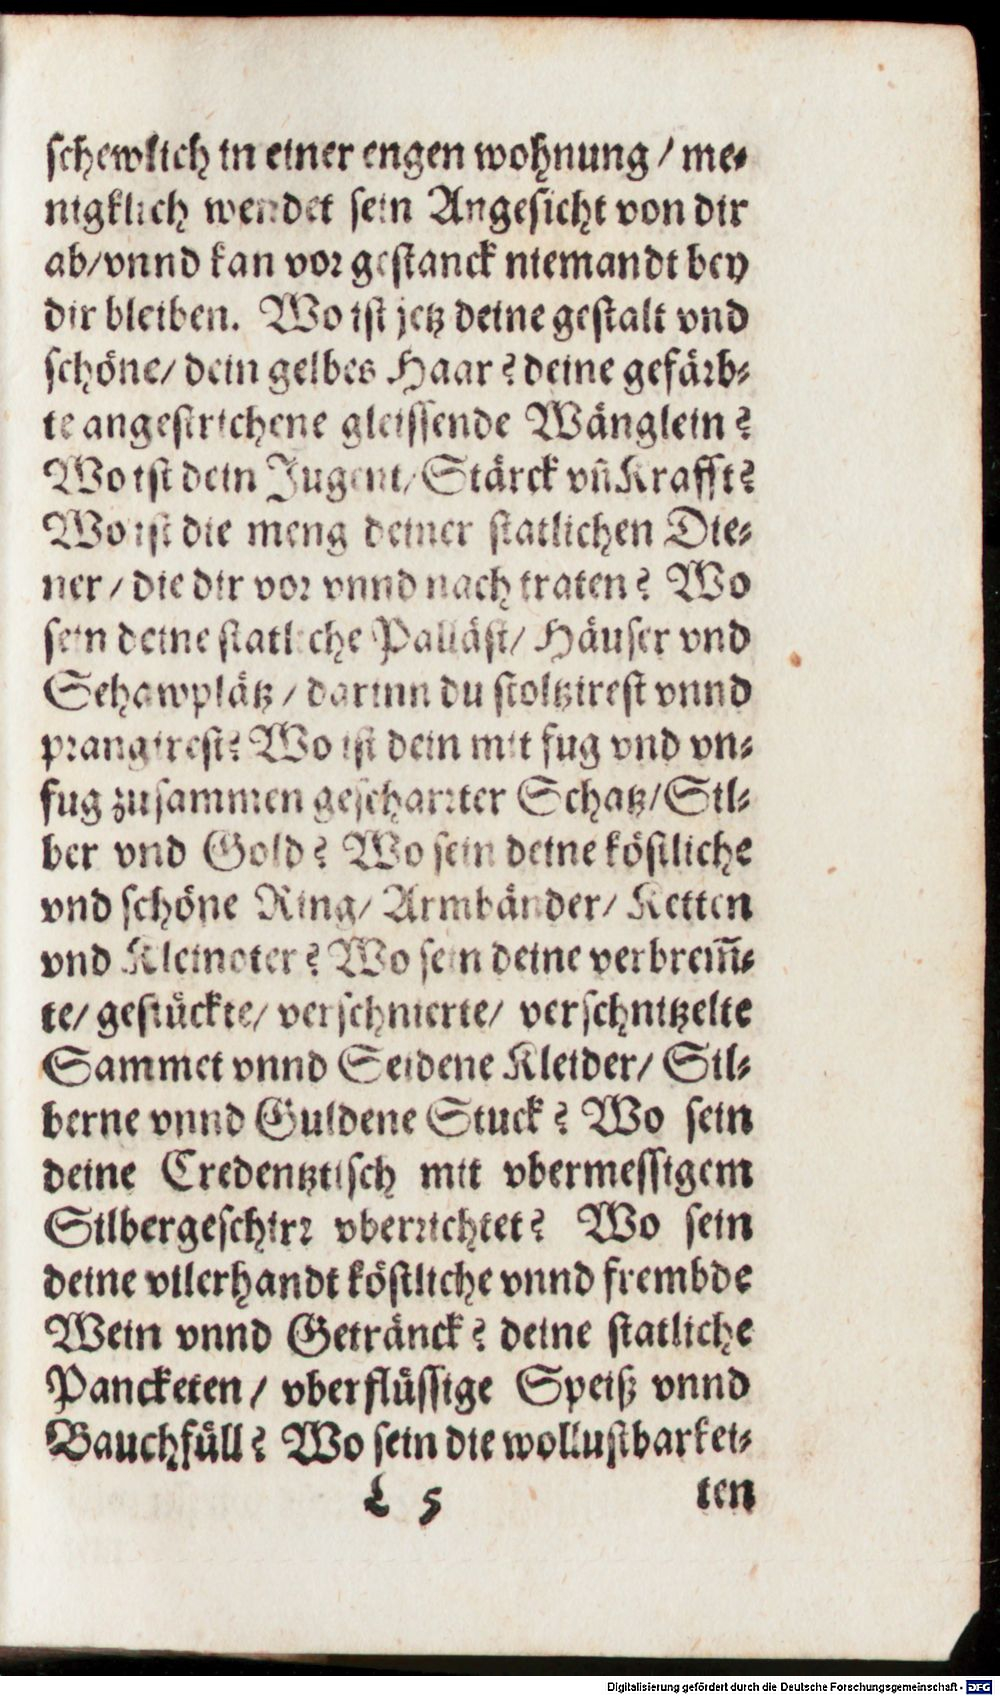 schewlich in einer engen wohnung / me-
nigklich wendet sein Angesicht von dir
ab/vnnd kan vor gestanck niemandt bey
dir bleiben. Wo ist jetz deine gestalt vnd
schöne/ dein gelbes Haar? deine gefärb-
te angestrichene gleissende Wänglein?
Wo ist dein Jugent/ Stärck vñ Krafft?
Wo ist die meng deiner statlichen Die-
ner / die dir vor vnnd nach traten? Wo
sein deine statliche Palläst/ Häuser vnd
Sehawplätz / darinn du stoltzirest vnnd
prangirest? Wo ist dein mit fug vnd vn-
fug zusammen gescharrter Schatz/Sil-
ber vnd Gold? Wo sein deine köstliche
vnd schöne Ring/ Armbänder/ Ketten
vnd Kleinoter? Wo sein deine verbrem̃-
te/ gestückte/ verschnierte/ verschnitzelte
Sammet vnnd Seidene Kleider/ Sil-
berne vnnd Guldene Stuck? Wo sein
deine Credentztisch mit vbermessigem
Silbergeschirr vberrichtet? Wo sein
deine vilerhandt köstliche vnnd frembde
Wein vnnd Getränck? deine statliche
Pancketen / vberflüssige Speiß vnnd
Bauchfüll? Wo sein die wollustbarkei-
L 5 ten
Digitalisierung gefördert durch die Deutsche Forschungsgemeinschaft - DFG